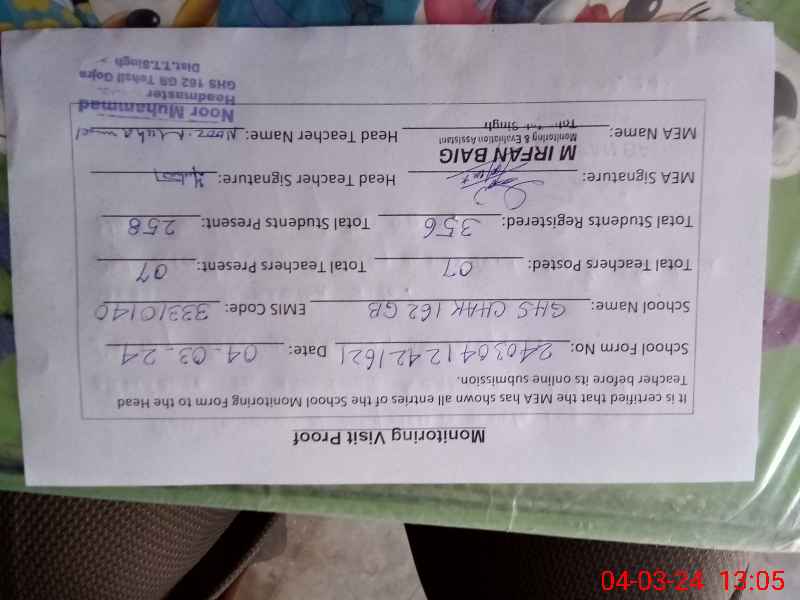 Monitoring Visit Proof
It is certified that the MEA has shown all entries of the School Monitoring Form to the Head
Teacher before its online submission.
School Form No: 24030412421621 Date: 04-03-24
School Name: GHS CHAK 162 GB EMIS Code: 33310140
Total Teachers Posted: 07 Total Teachers Present: 07
Total Students Registered: 356 Total Students Present: 258
MEA Signature: Head Teacher Signature:
M IRFAN BAIG
Monitoring & Evaluation Assistant
MEA Name: Head Teacher Name: Noor Muhammad
Noor Muhammad
Headmaster
GHS 162 GB Tehsil Gojra
Dist.T.T.Singh
04-03-24 13:05